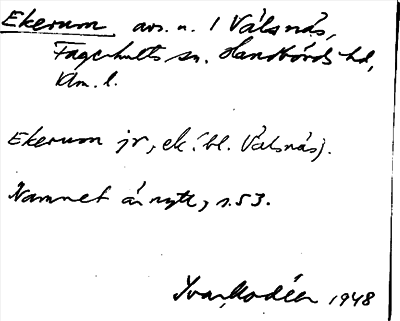 Ekerum avs. u. 1 Välsnäs,
Fagerhults sn. Handbörds hd,
Klm. l.
Ekerum jr, ek (bl. Välsnäs).
Namnet är nytt, s. 53.
Ivar Modéer 1948